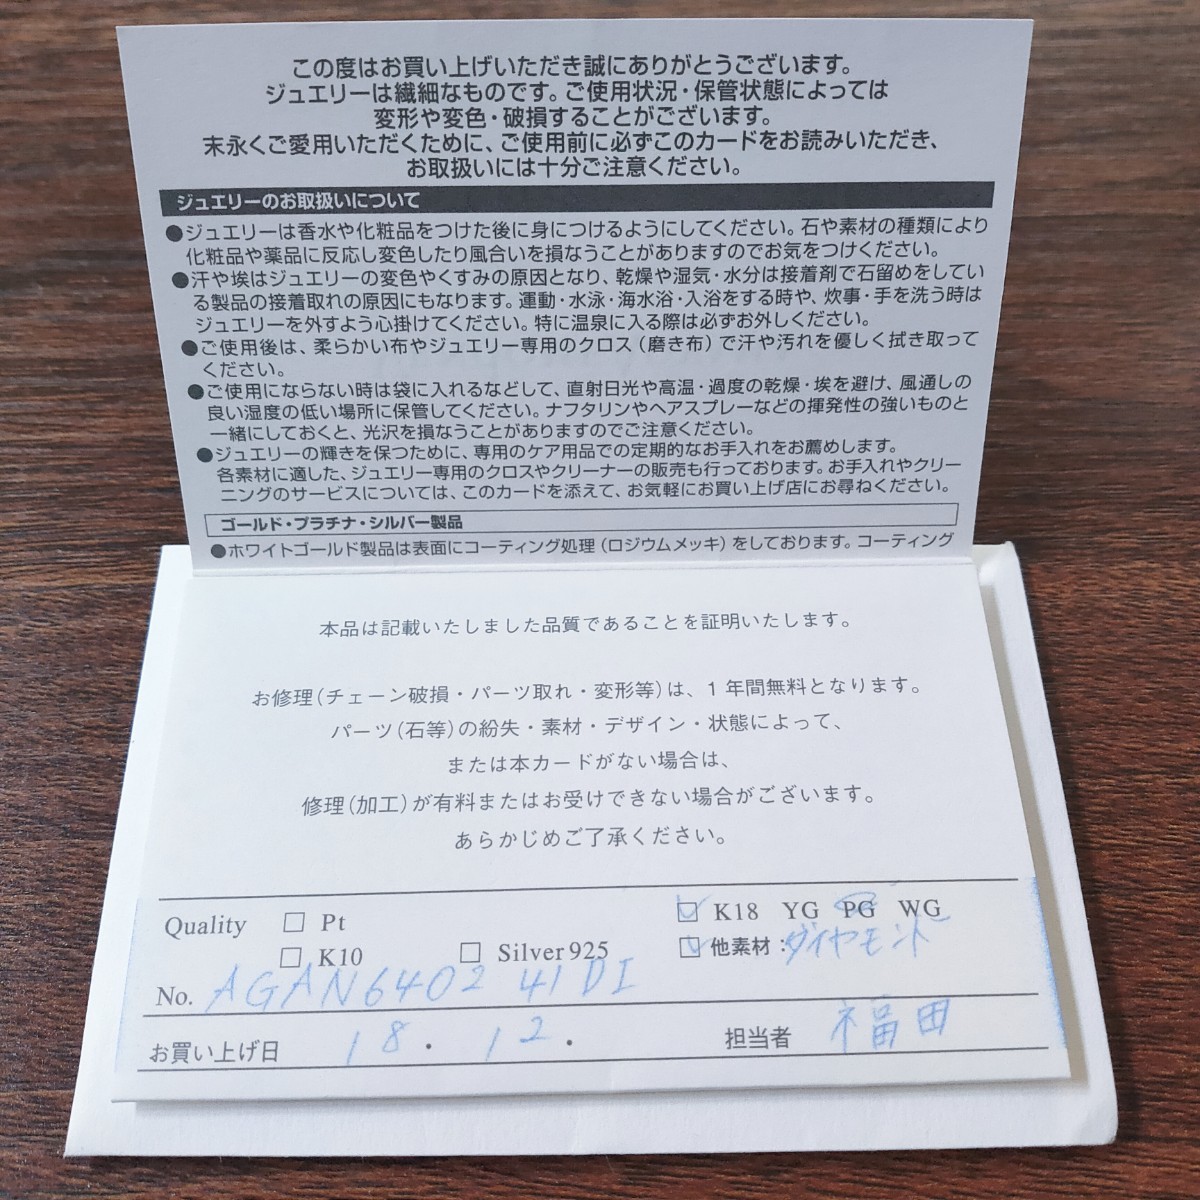 この度はお買い上げいただき誠にありがとうございます。
ジュエリーは繊細なものです。ご使用状況・保管状態によっては
変形や変色・破損することがございます。
末永くご愛用いただくために、ご使用前に必ずこのカードをお読みいただき、
お取扱いには十分ご注意ください。
ジュエリーのお取扱いについて
●ジュエリーは香水や化粧品をつけた後に身につけるようにしてください。石や素材の種類により
化粧品や薬品に反応し変色したり風合いを損なうことがありますのでお気をつけください。
●汗や埃はジュエリーの変色やくすみの原因となり、乾燥や湿気・水分は接着剤で石留めをしてい
る製品の接着取れの原因にもなります。運動・水泳・海水浴・入浴をする時や、炊事・手を洗う時は
ジュエリーを外すよう心掛けてください。特に温泉に入る際は必ずお外しください。
●ご使用後は、柔らかい布やジュエリー専用のクロス(磨き布)で汗や汚れを優しく拭き取って
ください。
●ご使用にならない時は袋に入れるなどして、直射日光や高温・過度の乾燥・埃を避け、風通しの
良い湿度の低い場所に保管してください。ナフタリンやヘアスプレーなどの揮発性の強いものと
一緒にしておくと、光沢を損なうことがありますのでご注意ください。
●ジュエリーの輝きを保つために、専用のケア用品での定期的なお手入れをお薦めします。
各素材に適した、ジュエリー専用のクロスやクリーナーの販売も行っております。お手入れやクリー
ニングのサービスについては、このカードを添えて、お気軽にお買い上げ店にお尋ねください。
ゴールド・プラチナ・シルバー製品
●ホワイトゴールド製品は表面にコーティング処理(ロジウムメッキ)をしております。コーティング
本品は記載いたしました品質であることを証明いたします。
お修理(チェーン破損・パーツ取れ・変形等)は、1年間無料となります。
パーツ(石等)の紛失・素材・デザイン・状態によって、
または本カードがない場合は、
修理(加工)が有料またはお受けできない場合がございます。
あらかじめご了承ください。
Quality □ Pt ☑ K18 YG PG WG
□ K10 □ Silver925 ☑ 他素材:ダイヤモンド
No. AGAN6402 41DI
お買い上げ日 18. 12. 担当者 福田